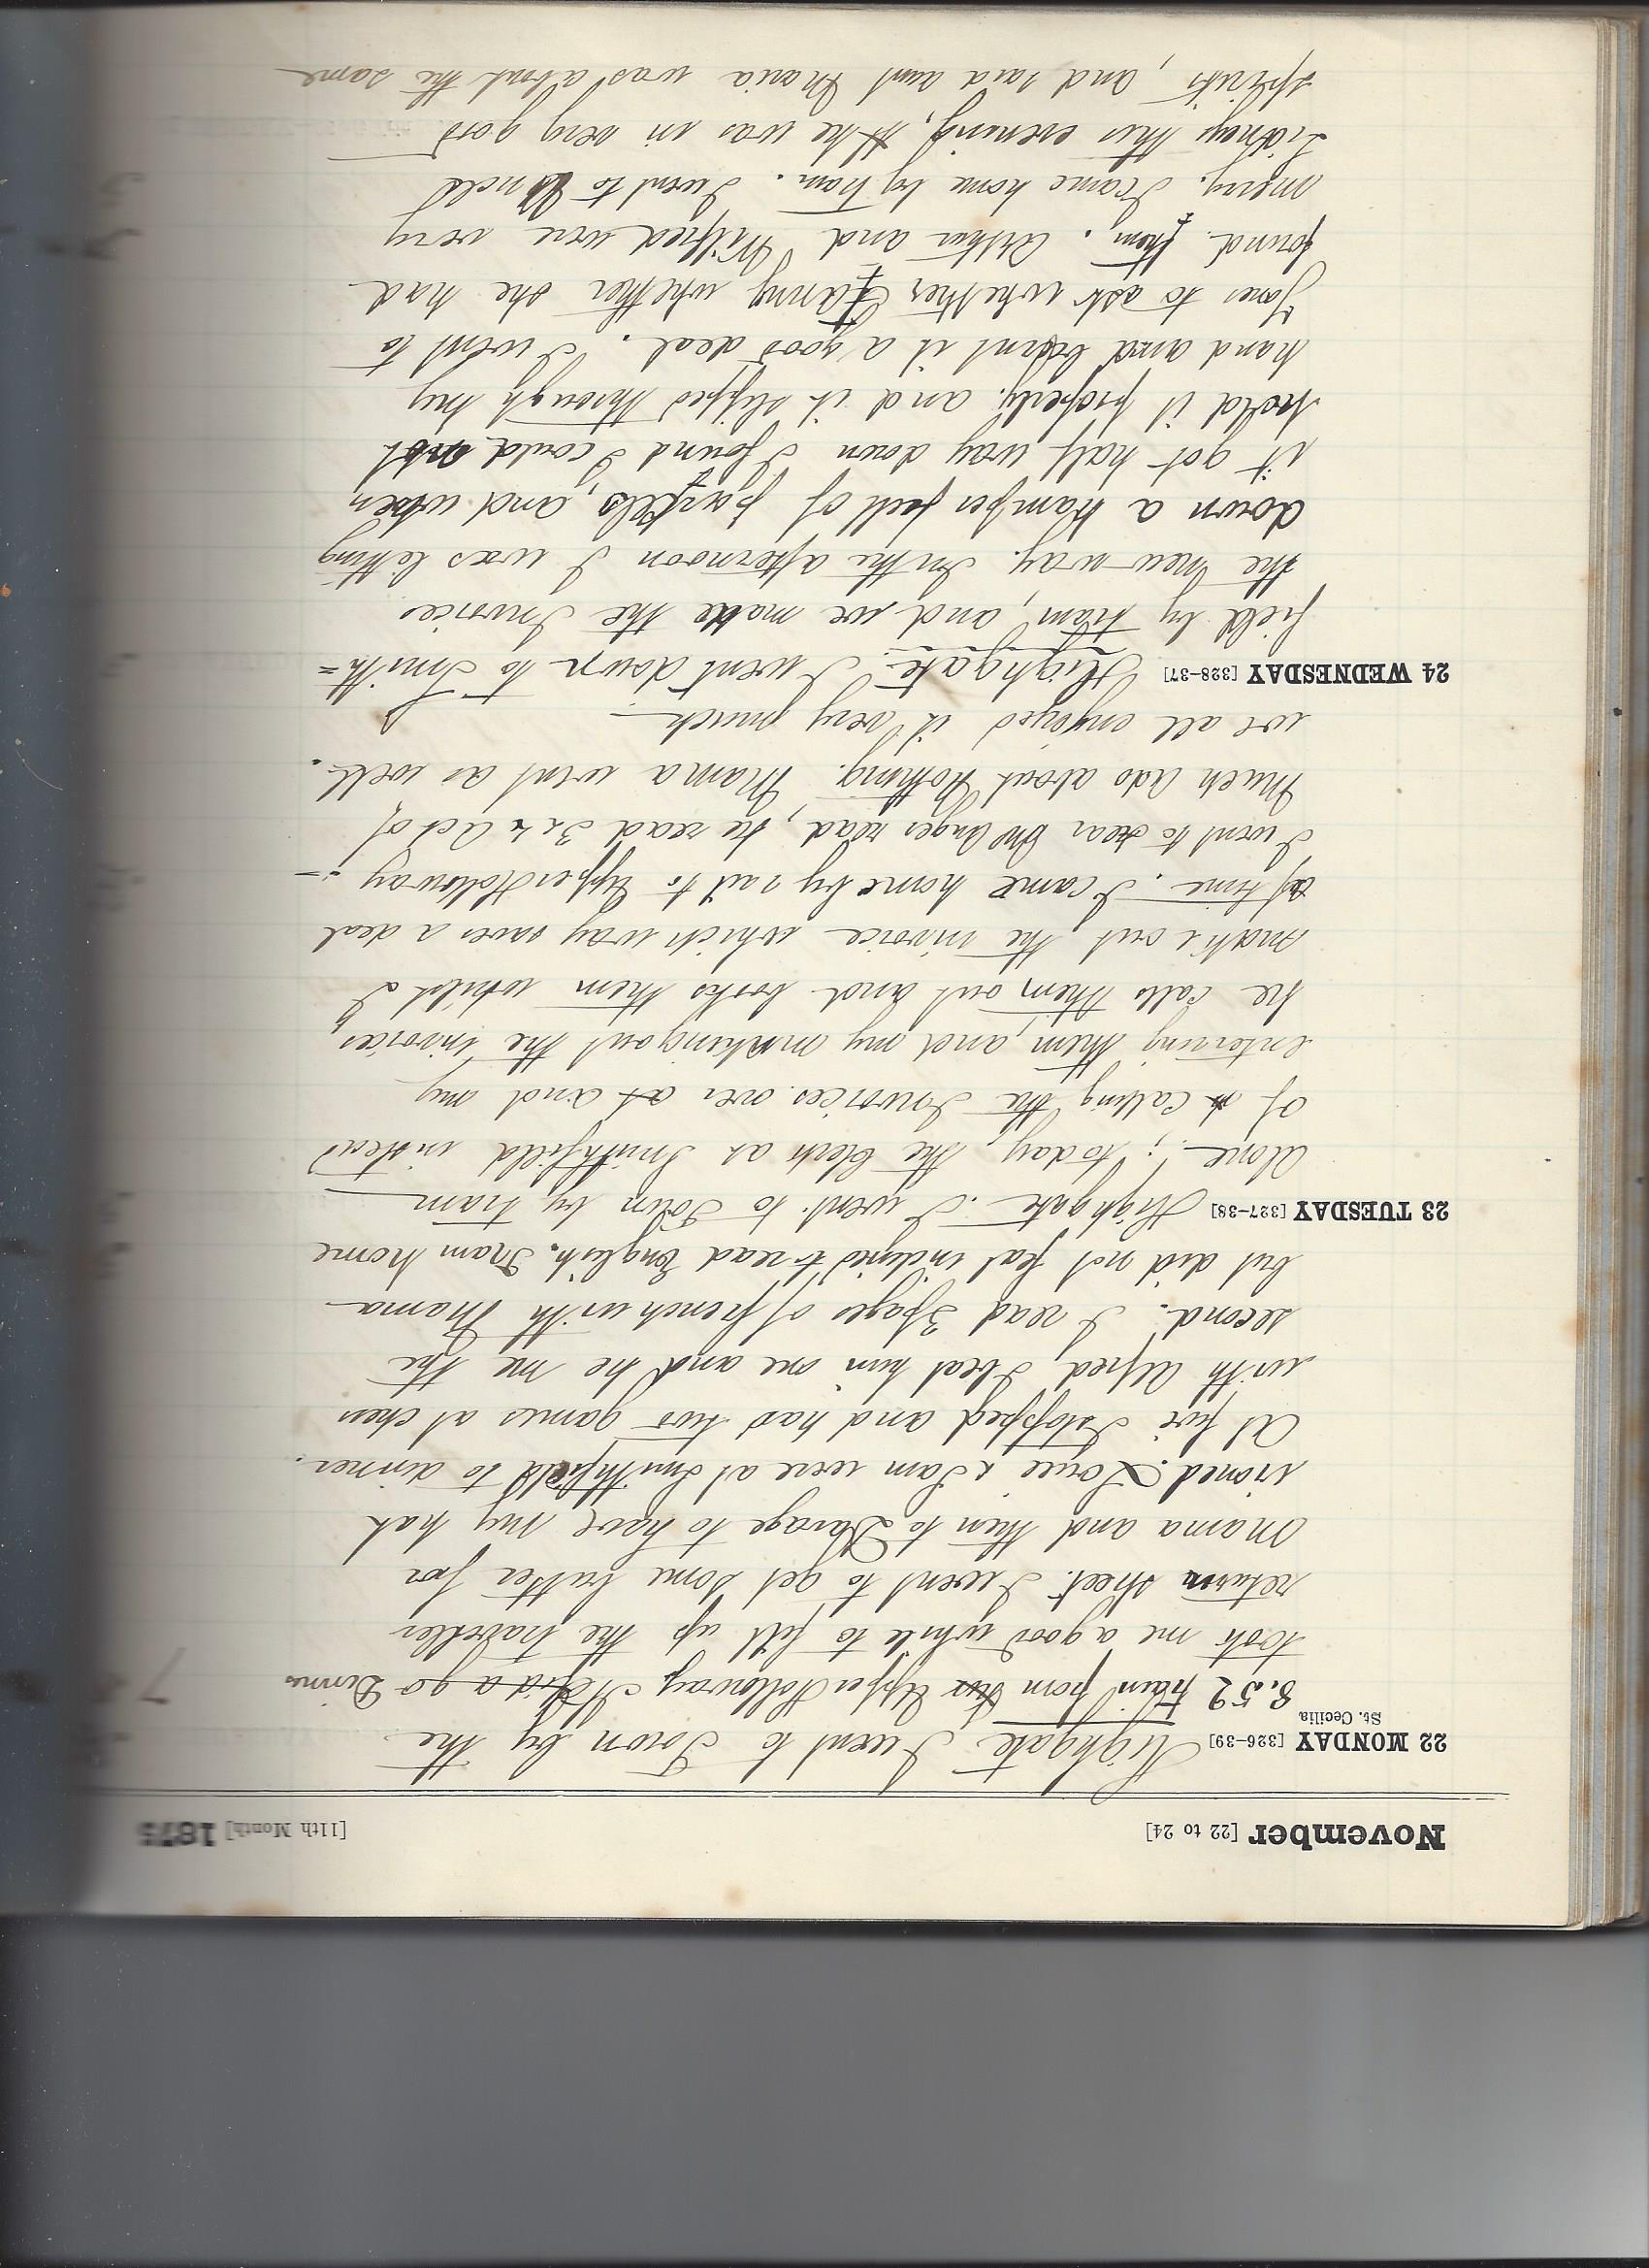 November [22 to 24] [11th Month] 1875
22 MONDAY [326-39] Highgate I went to Town by the
St. Cecilia
8.52 train from Upper Holloway Dinner
took me a good while to fill up the traveller
return sheet. I went to get some butter for
Mama and then to Savage to have my hat
ironed. Louie & Sam were at Smithfield to dinner.
At five I stopped and had two games at chess
with Alfred I beat him one and he me the
second. I read 3 pages of french with Mama
but did not feal inclined to read English. Tram home
23 TUESDAY [327-38] Highgate. I went to Town by tram
alone; today, the clerk at Smithfield instead
of calling the Invoices over and my
entering them, and my making out the invoices,
he calls them out and books them whilst I
make out the invoice which way saves a deal
of time. I came home by rail to Upper Holloway -
I went to hear read, he read 3 & 4 Act of
Much ado about Nothing. Mama went as well.
we all enjoyed it very much
24 WEDNESDAY [328-37] Highgate I went down to Smith=
field by tram, and we make the Invoices
the new way. In the afternoon I was letting
down a hamper full of parcels, and when
it got half way down I found I could not
hold it properly and it slipped through my
hand and burnt it a good deal. I went to
Jones to ask whether Fanny whether she had
found them. Arthur and Wilfred were very
merry. I came home by tram. I went to Uncle
Sidney this evening, he was in very good
spirits, and said aunt Maria was about the same